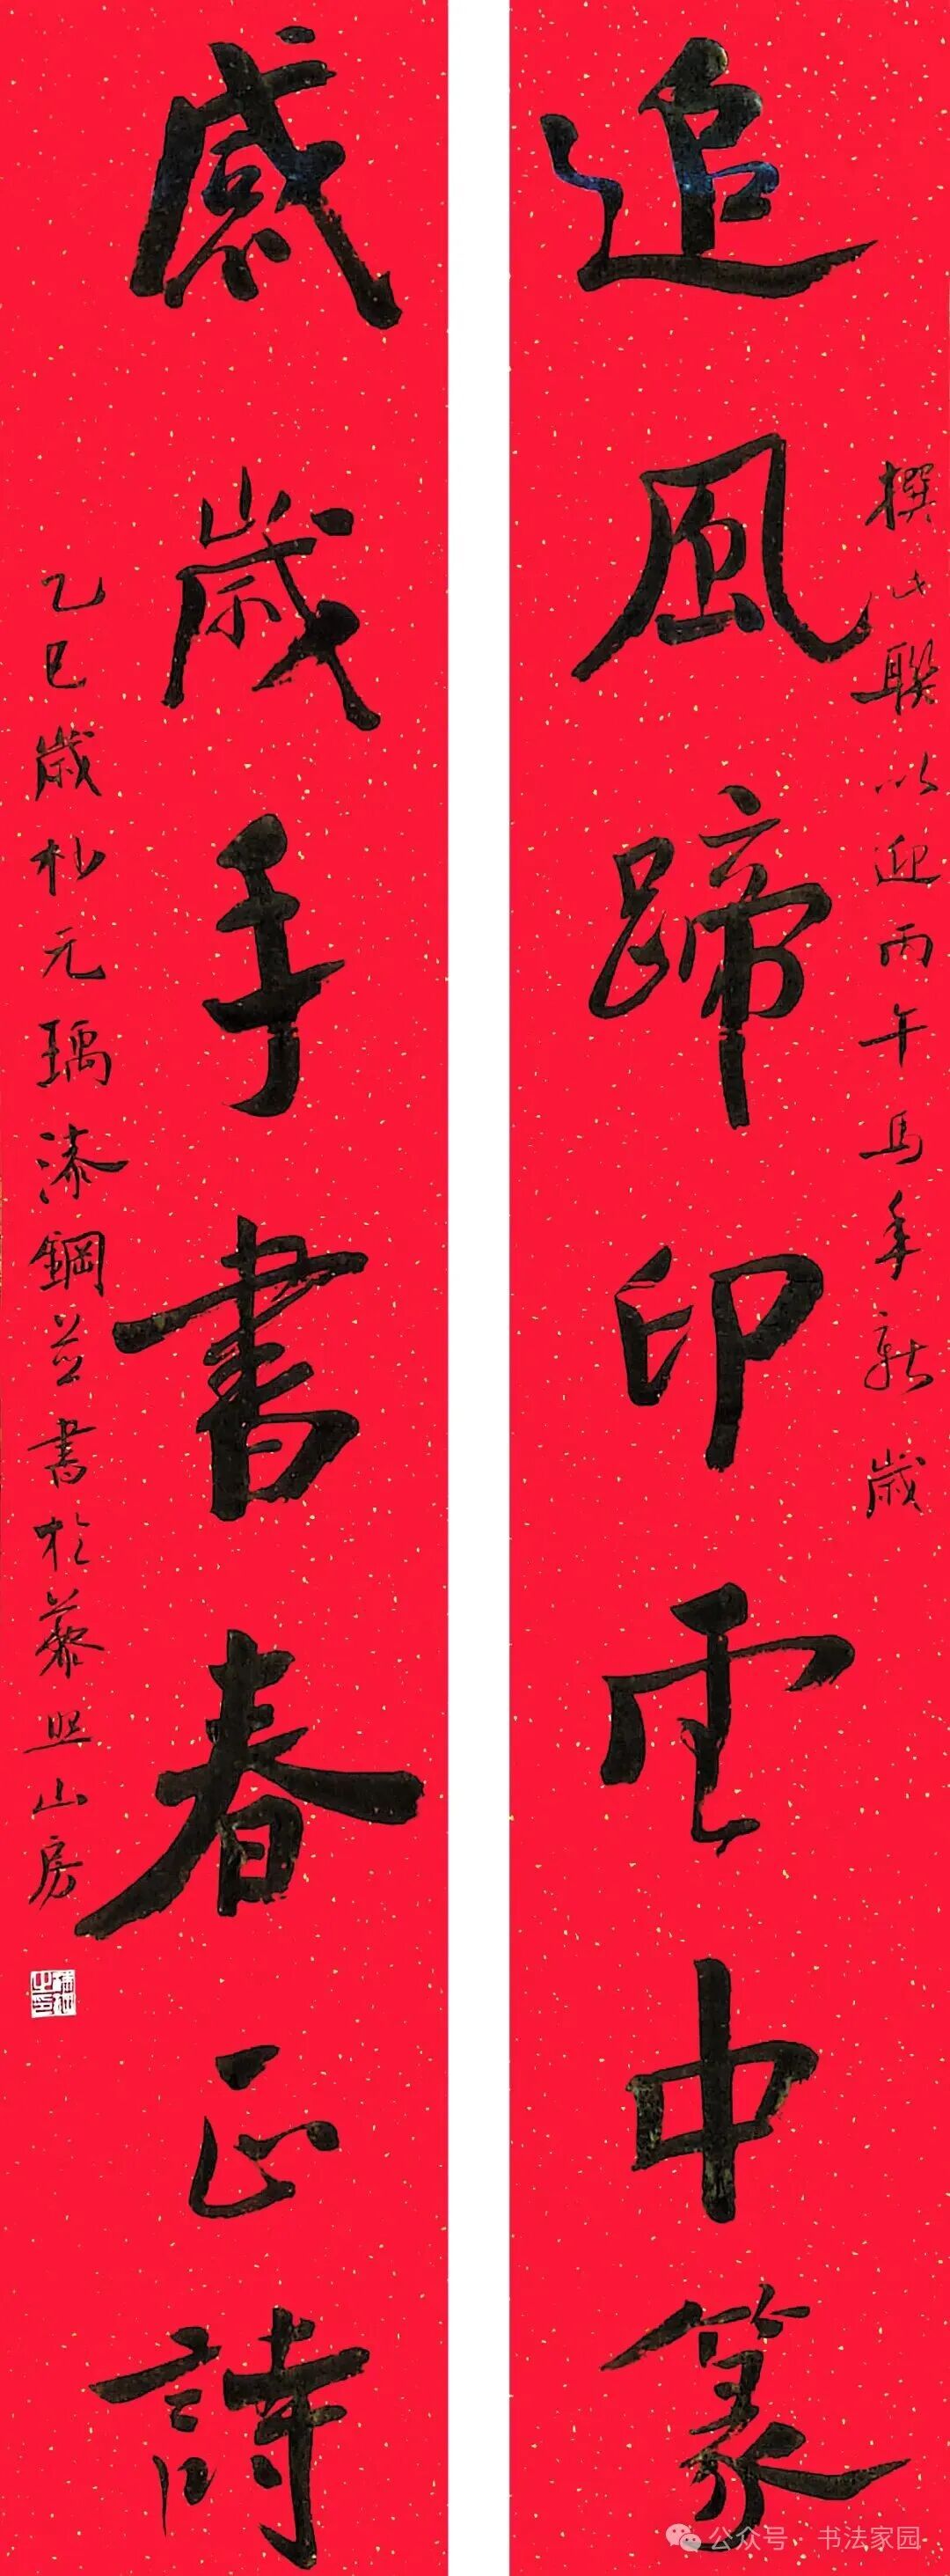 追風蹄印雲中篆
撰此聯以迎丙午馬年新歲
感歲手書春正詩
乙巳歲杪元瑀漆鋼並書於藜照山房
公众号 · 书法家园